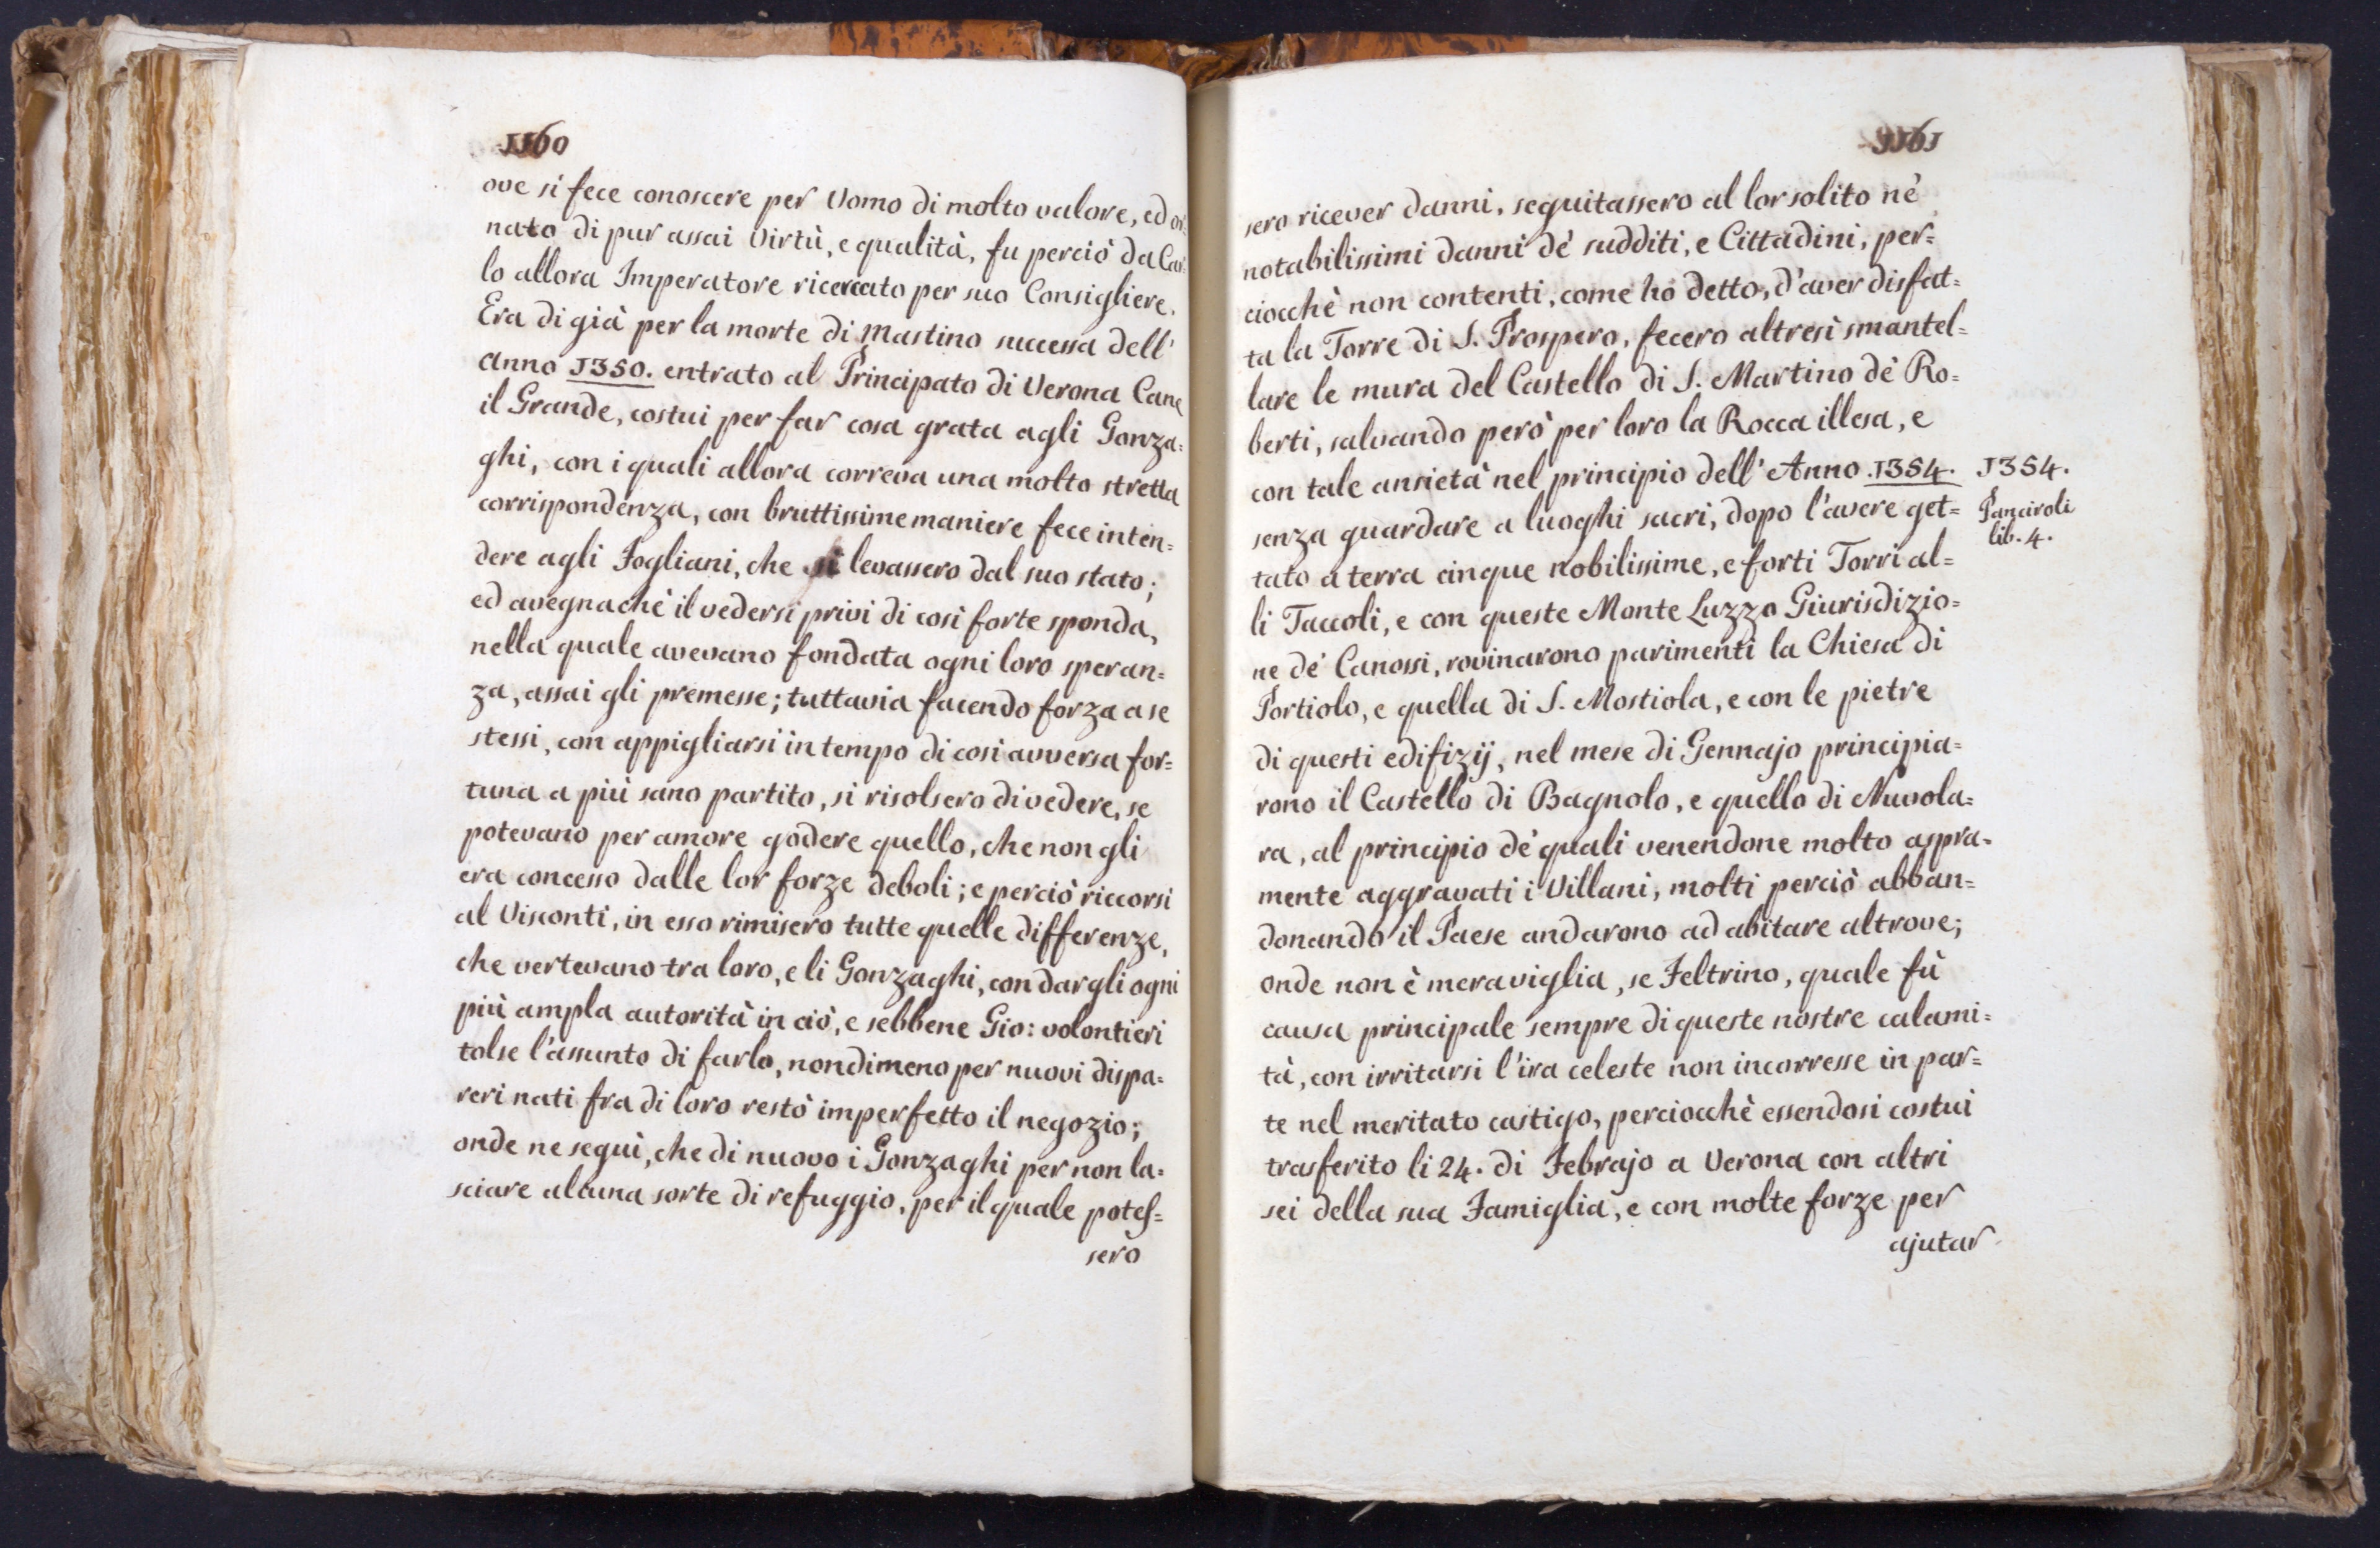 1160
ove si fece conoscere per Uomo di molto valore, ed or=
nato di pur assai Virtù, e qualità, fu perciò da Car=
lo allora Imperatore ricercato per suo Consigliere.
Era di già per la morte di Mastino successa dell'
anno 1350. entrato al Principato di Verona Cane
il Grande, costui per far cosa grata agli Gonza=
ghi, con i quali allora correva una molto stretta
corrispondenza, con bruttissime maniere fece inten=
dere agli Fogliani, che si levassero dal suo stato;
ed avegnachè il vedersi privi di così forte sponda,
nella quale avevano fondata ogni loro speran=
za, assai gli premesse; tuttavia facendo forza a se
stessi, con appigliarsi in tempo di così avversa for=
tuna a più sano partito, si risolsero di vedere, se
potevano per amore godere quello, che non gli
era concesso dalle lor forze deboli; e perciò riccorsi
al Visconti, in esso rimisero tutte quelle differenze,
che vertevano tra loro, e li Gonzaghi, con dargli ogni
più ampla autorità in ciò, e sebbene Gio: volontieri
tolse l'assunto di farlo, nondimeno per nuovi dispa=
reri nati fra di loro restò imperfetto il negozio;
onde ne seguì, che di nuovo i Gonzaghi per non la=
sciare alcuna sorte di refuggio, per il quale potes=
sero
1161
sero ricever danni, seguitassero al lor solito nè
notabilissimi danni dè sudditi, e Cittadini, per=
ciocchè non contenti, come hò detto, d'aver disfat=
ta la Torre di S. Prospero, fecero altresì smantel=
lare le mura del Castello di S. Martino dè Ro=
berti, salvando però per loro la Rocca illesa, e
con tale ansietà nel principio dell'Anno .1354. 1354.
senza guardare a luoghi sacri, dopo l'avere get= Panciroli
lib. 4.
tato a terra cinque nobilissime, e forti Torri al=
li Taccoli, e con queste Monte Luzzo Giurisdizio=
ne dè Canossi, rovinarono parimenti la Chiesa di
Portiolo, e quella di S. Mostiola, e con le pietre
di questi edifizij, nel mese di Gennajo principia=
rono il Castello di Bagnolo, e quello di Nuvola=
ra, al principio dè quali venendone molto aspra=
mente aggravati i Villani, molti perciò abban=
donando il Paese andarono ad abitare altrove;
onde non è meraviglia, se Feltrino, quale fù
causa principale sempre di queste nostre calami=
tà, con irritarsi l'ira celeste non incorresse in par=
te nel meritato castigo, perciocchè essendosi costui
trasferito li 24. di Febrajo a Verona con altri
sei della sua Famiglia, e con molte forze per
ajutar